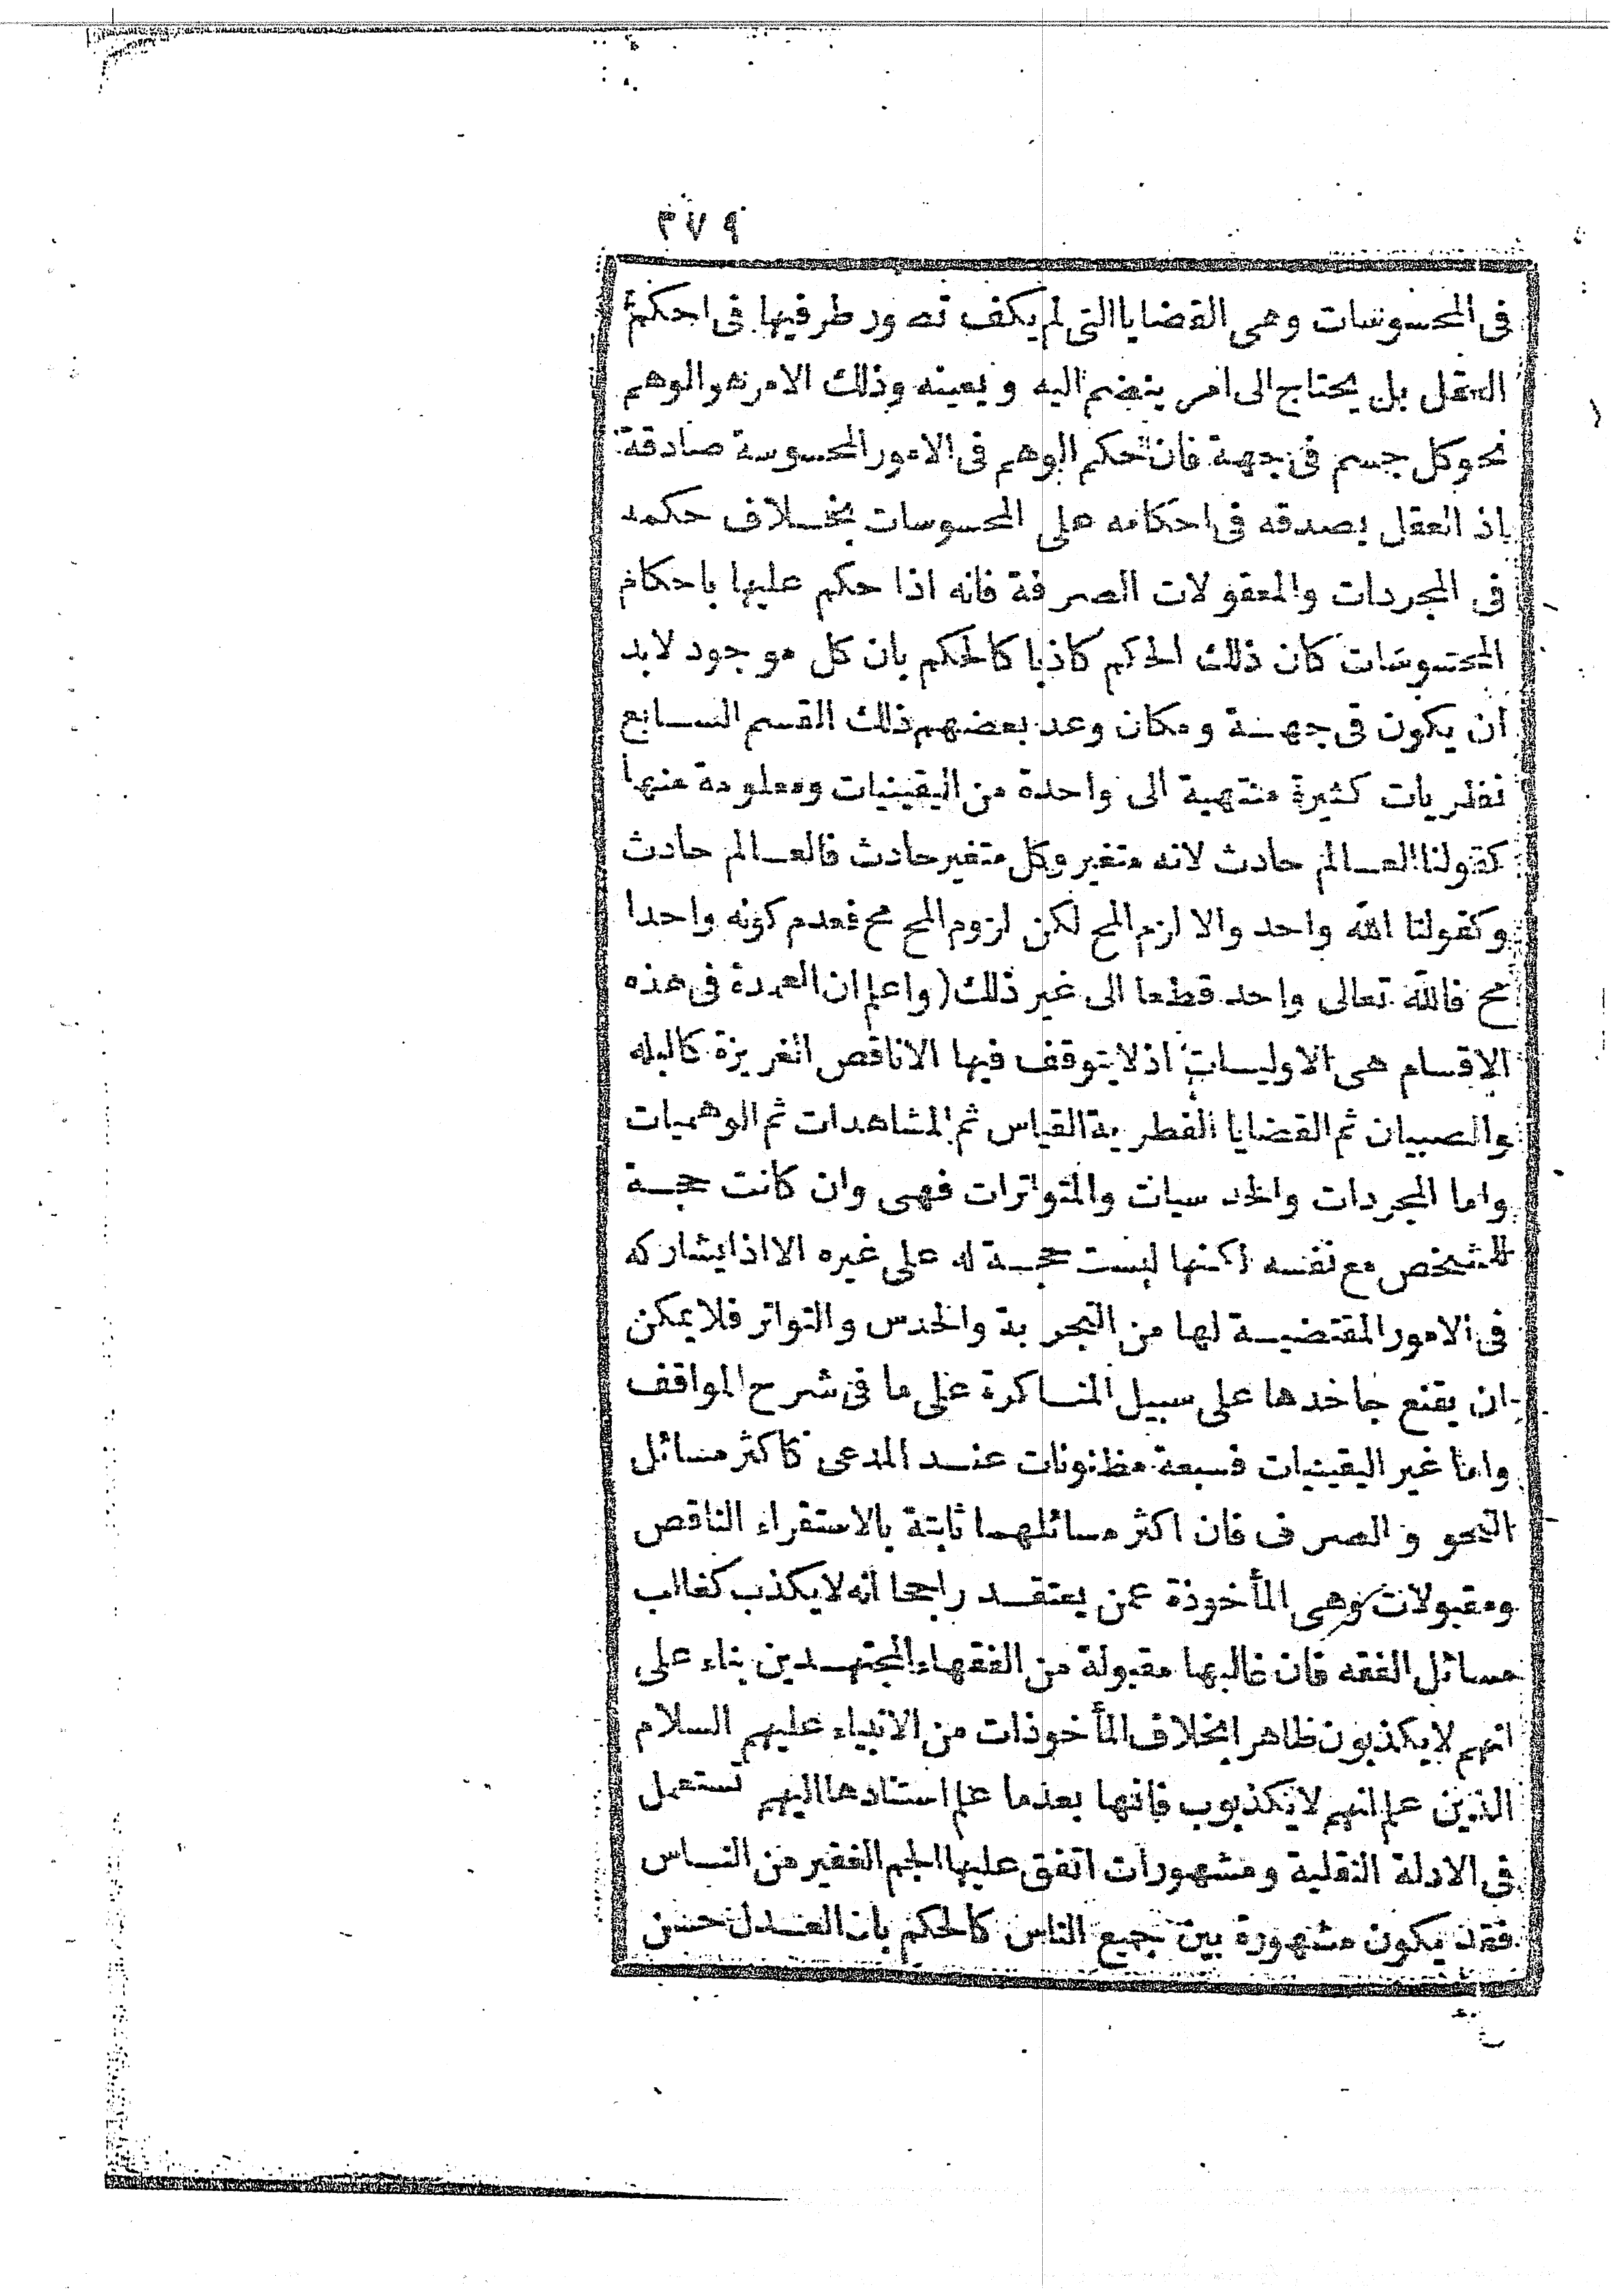 ٣٧٩
فى المحسوسات وهى القضايا التى لم يكف تصور طرفيها فى احكم
العقل بل يحتاج الى امر ينضم اليه ويعينه وذلك الامر هو الوهم
نحو كل جسم فى جهة فان حكم الوهم فى الامور المحسوسة صادقة
اذ العقل يصدقه فى احكامه على المحسوسات بخلاف حكمه
فى المجردات والمعقولات الصرفة فانه اذا حكم عليها باحكام
المحسوسات كان ذلك الحكم كاذبا كالحكم بان كل موجود لابد
ان يكون فى جهة ومكان وعد بعضهم ذلك القسم السابع
نظريات كثيرة منتهية الى واحدة من اليقينيات ومعلومة منها
كقولنا العالم حادث لانه متغير وكل متغير حادث فالعالم حادث
وكقولنا الله واحد والا لزم المح لكن لزوم المح مح فعدم كونه واحدا
مح فالله تعالى واحد قطعا الى غير ذلك (واعلم ان العمدة فى هذه
الاقسام هى الاوليات اذ لا يتوقف فيها الا ناقص الغريزة كالبله
والصبيان ثم القضايا الفطرية القياس ثم المشاهدات ثم الوهميات
واما المجردات والحدسيات والمتواترات فهى وان كانت حجة
للشخص مع نفسه لكنها ليست حجة له على غيره الا اذا يشاركه
فى الامور المقتضية لها من التجربة والحدس والتواتر فلا يمكن
ان يقنع جاحدها على سبيل المناكرة على ما فى شرح المواقف
واما غير اليقينيات فسبعة مظنونات عند المدعى كاكثر مسائل
النحو والصرف فان اكثر مسائلهما ثابتة بالاستقراء الناقص
ومقبولات وهى المأخوذة عمن يعتقد راجحا انه لا يكذب كغالب
مسائل الفقه فان غالبها مقبولة من الفقهاء المجتهدين بناء على
انهم لا يكذبون ظاهرا بخلاف المأخوذات من الانبياء عليهم السلام
الذين علم انهم لا يكذبوب فانها بعدما علم استنادها اليهم تستعمل
فى الادلة النقلية ومشهورات اتفق عليها الجم الغفير من الناس
فقد يكون مشهورة بين جميع الناس كالحكم بان العدل حسن